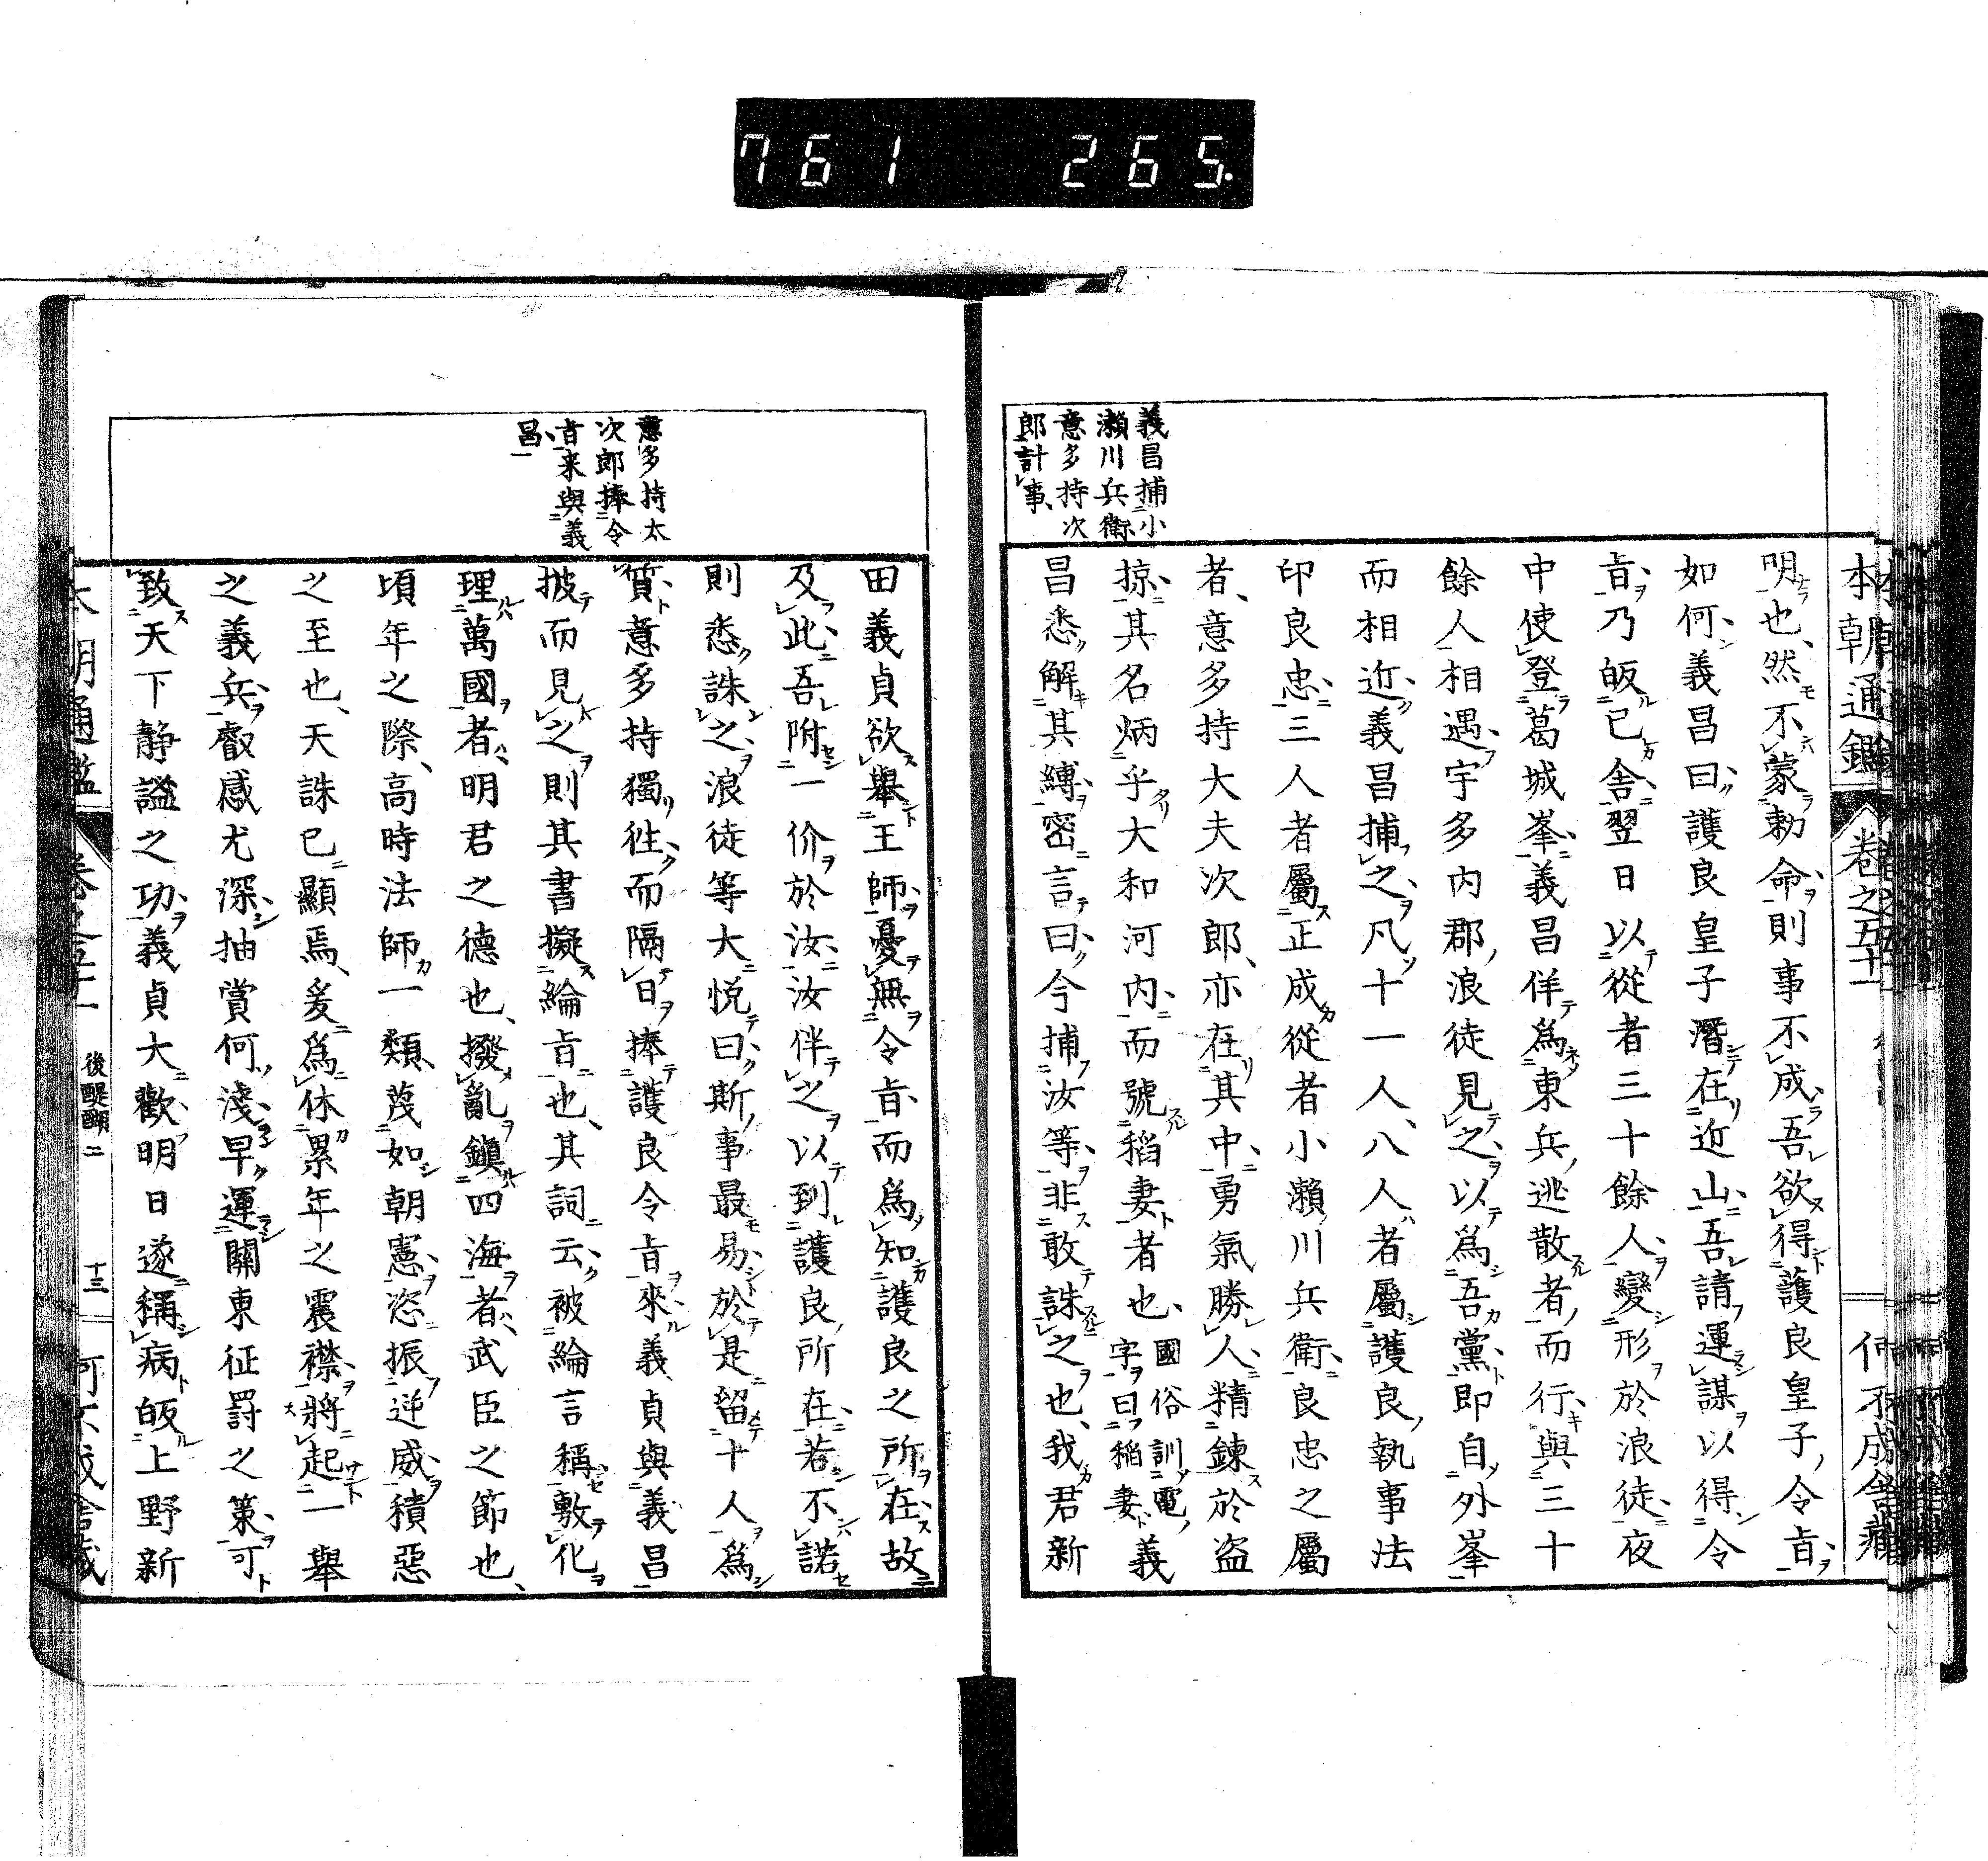 761 265.
本朝通鑑 卷之五十一 何不成舍藏
義昌捕小
瀨川兵衛
意多持次
郎計事
明也、然不蒙勅命則事不成吾欲得護良皇子令旨
如何義昌曰護良皇子潛在近山吾請運謀以得令
旨乃皈已舍翌日以從者三十餘人變形於浪徒夜
中使登葛城峯義昌佯為東兵逃散者而行與三十
餘人相遇宇多内郡浪徒見之以為吾黨即自外峯
而相近義昌捕之凡十一人、八人者屬護良執事法
印良忠三人者屬正成從者小瀨川兵衛良忠之屬
者、意多持大夫次郎、亦在其中勇氣勝人精鍊於盜
掠其名炳乎大和河内而號稻妻者也、國俗訓電字曰稲妻義
昌悉解其縛密言曰今捕汝等非敢誅之也、我君新
意多持太
次郎捧令
旨来與義
昌
田義貞欲舉王師憂無令旨而為知護良之所在故
及此吾附一价於汝汝伴之以到護良所在若不諾
則悉誅之浪徒等大悦曰斯事最易於是留十人為
質意多持獨徃而隔日捧護良令旨來義貞與義昌
披而見之則其書擬綸旨也、其詞云被綸言稱敷化
理萬國者明君之德也、撥亂鎭四海者武臣之節也、
頃年之際、高時法師一類蔑如朝憲恣振逆威積惡
之至也、天誅已顯焉、爰為休累年之震襟將起一舉
之義兵叡感尤深抽賞何淺早運關東征罸之策可
致天下静謐之功義貞大歡明日遂稱病皈上野新
後醍醐二 十三